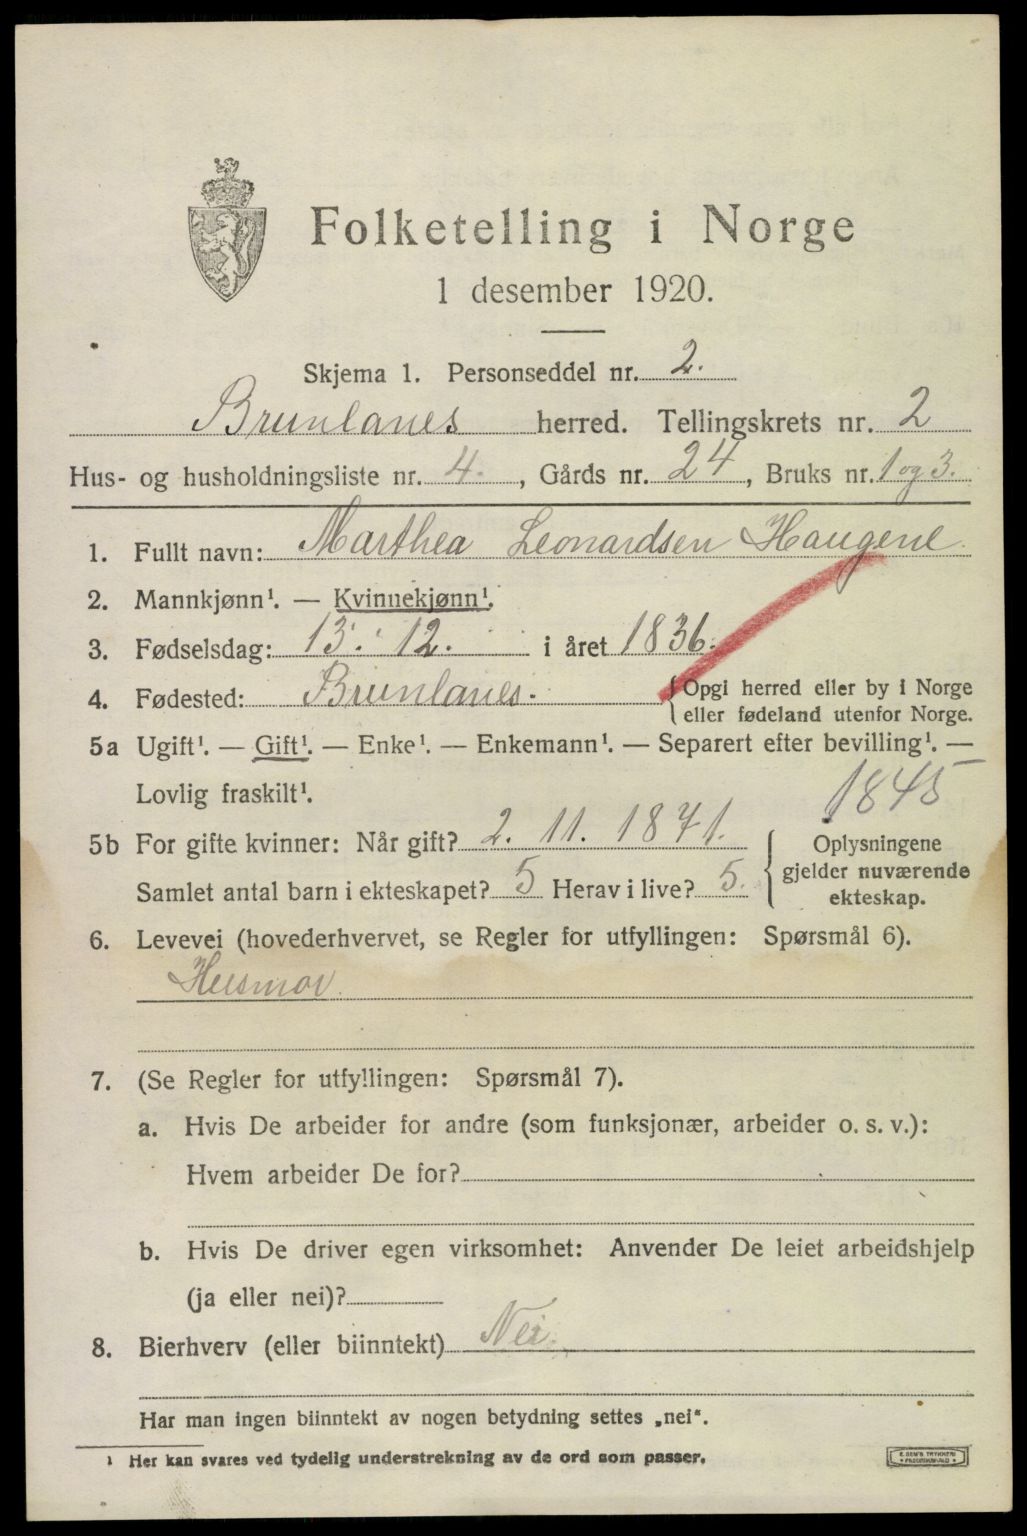 Folketelling i Norge
1 desember 1920.
Skjema 1. Personseddel nr. 2.
Brunlanes herred. Tellingskrets nr. 2
Hus- og husholdningsliste nr. 4. , Gårds nr. 24 , Bruks nr. 1 og 3.
1. Fullt navn: Marthea Leonardsen Haugene
2. Mannkjønn¹. — Kvinnekjønn¹.
3. Fødselsdag: 13. 12. i året 1836.
4. Fødested: Brunlanes. {Opgi herred eller by i Norge
eller fødeland utenfor Norge.
5a Ugift¹. — Gift¹. — Enke¹. — Enkemann¹. — Separert efter bevilling¹. —
Lovlig fraskilt¹. 1845
5b For gifte kvinner: Når gift? 2. 11. 1871. Oplysningene
gjelder nuværende
Samlet antal barn i ekteskapet? 5 Herav i live? 5. ekteskap.
6. Levevei (hovederhvervet, se Regler for utfyllingen: Spørsmål 6).
Husmor.
7. (Se Regler for utfyllingen: Spørsmål 7).
a. Hvis De arbeider for andre (som funksjonær, arbeider o. s. v.):
Hvem arbeider De for?
b. Hvis De driver egen virksomhet: Anvender De leiet arbeidshjelp
(ja eller nei)?
8. Bierhverv (eller biinntekt) Nei.
Har man ingen biinntekt av nogen betydning settes „nei“.
¹ Her kan svares ved tydelig understrekning av de ord som passer.